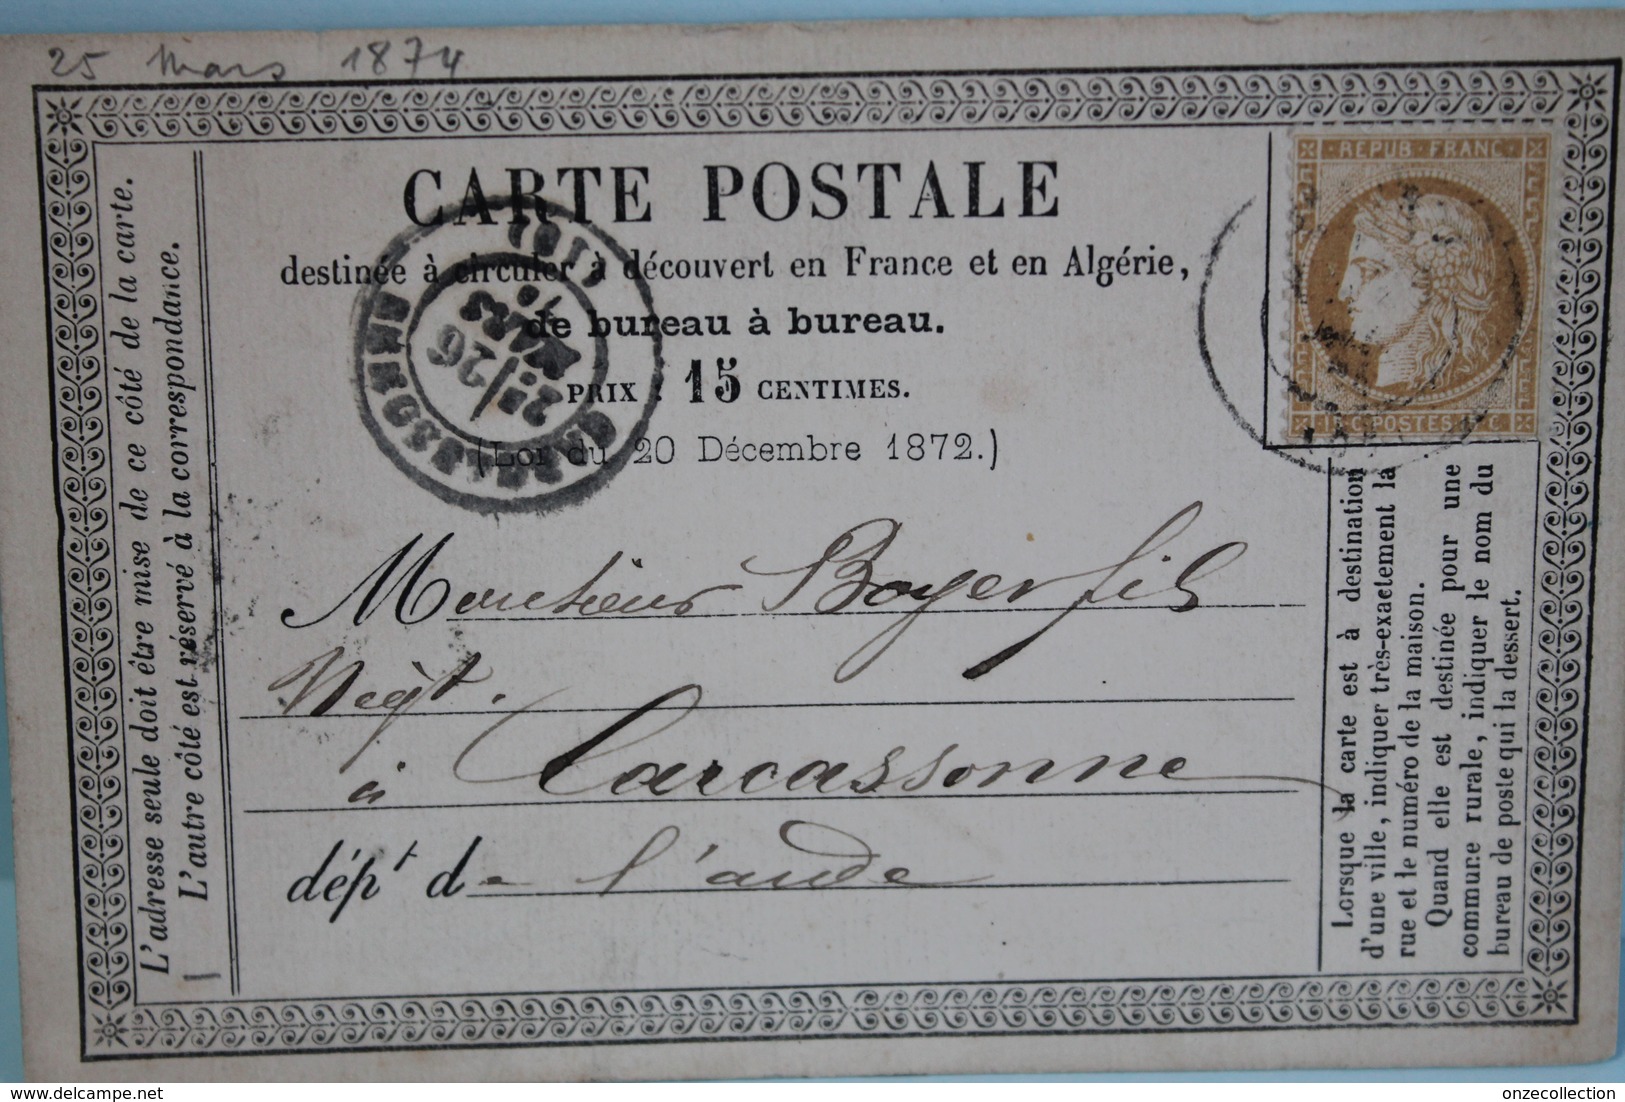 25 mars 1874
CARTE POSTALE
destinée à circuler à découvert en France et en Algérie,
de bureau à bureau.
PRIX : 15 CENTIMES.
(Loi du 20 Décembre 1872.)
Monsieur Boyer fils
Négt.
à Carcassonne
dépt de l'aude
L'adresse seule doit être mise de ce côté de la carte.
L'autre côté est réservé à la correspondance.
REPUB · FRANC ·
POSTES
26
MARS
Lorsque la carte est à destination
d'une ville, indiquer très-exactement la
rue et le numéro de la maison.
Quand elle est destinée pour une
commune rurale, indiquer le nom du
bureau de poste qui la dessert.
delcampe.net
onzecollection